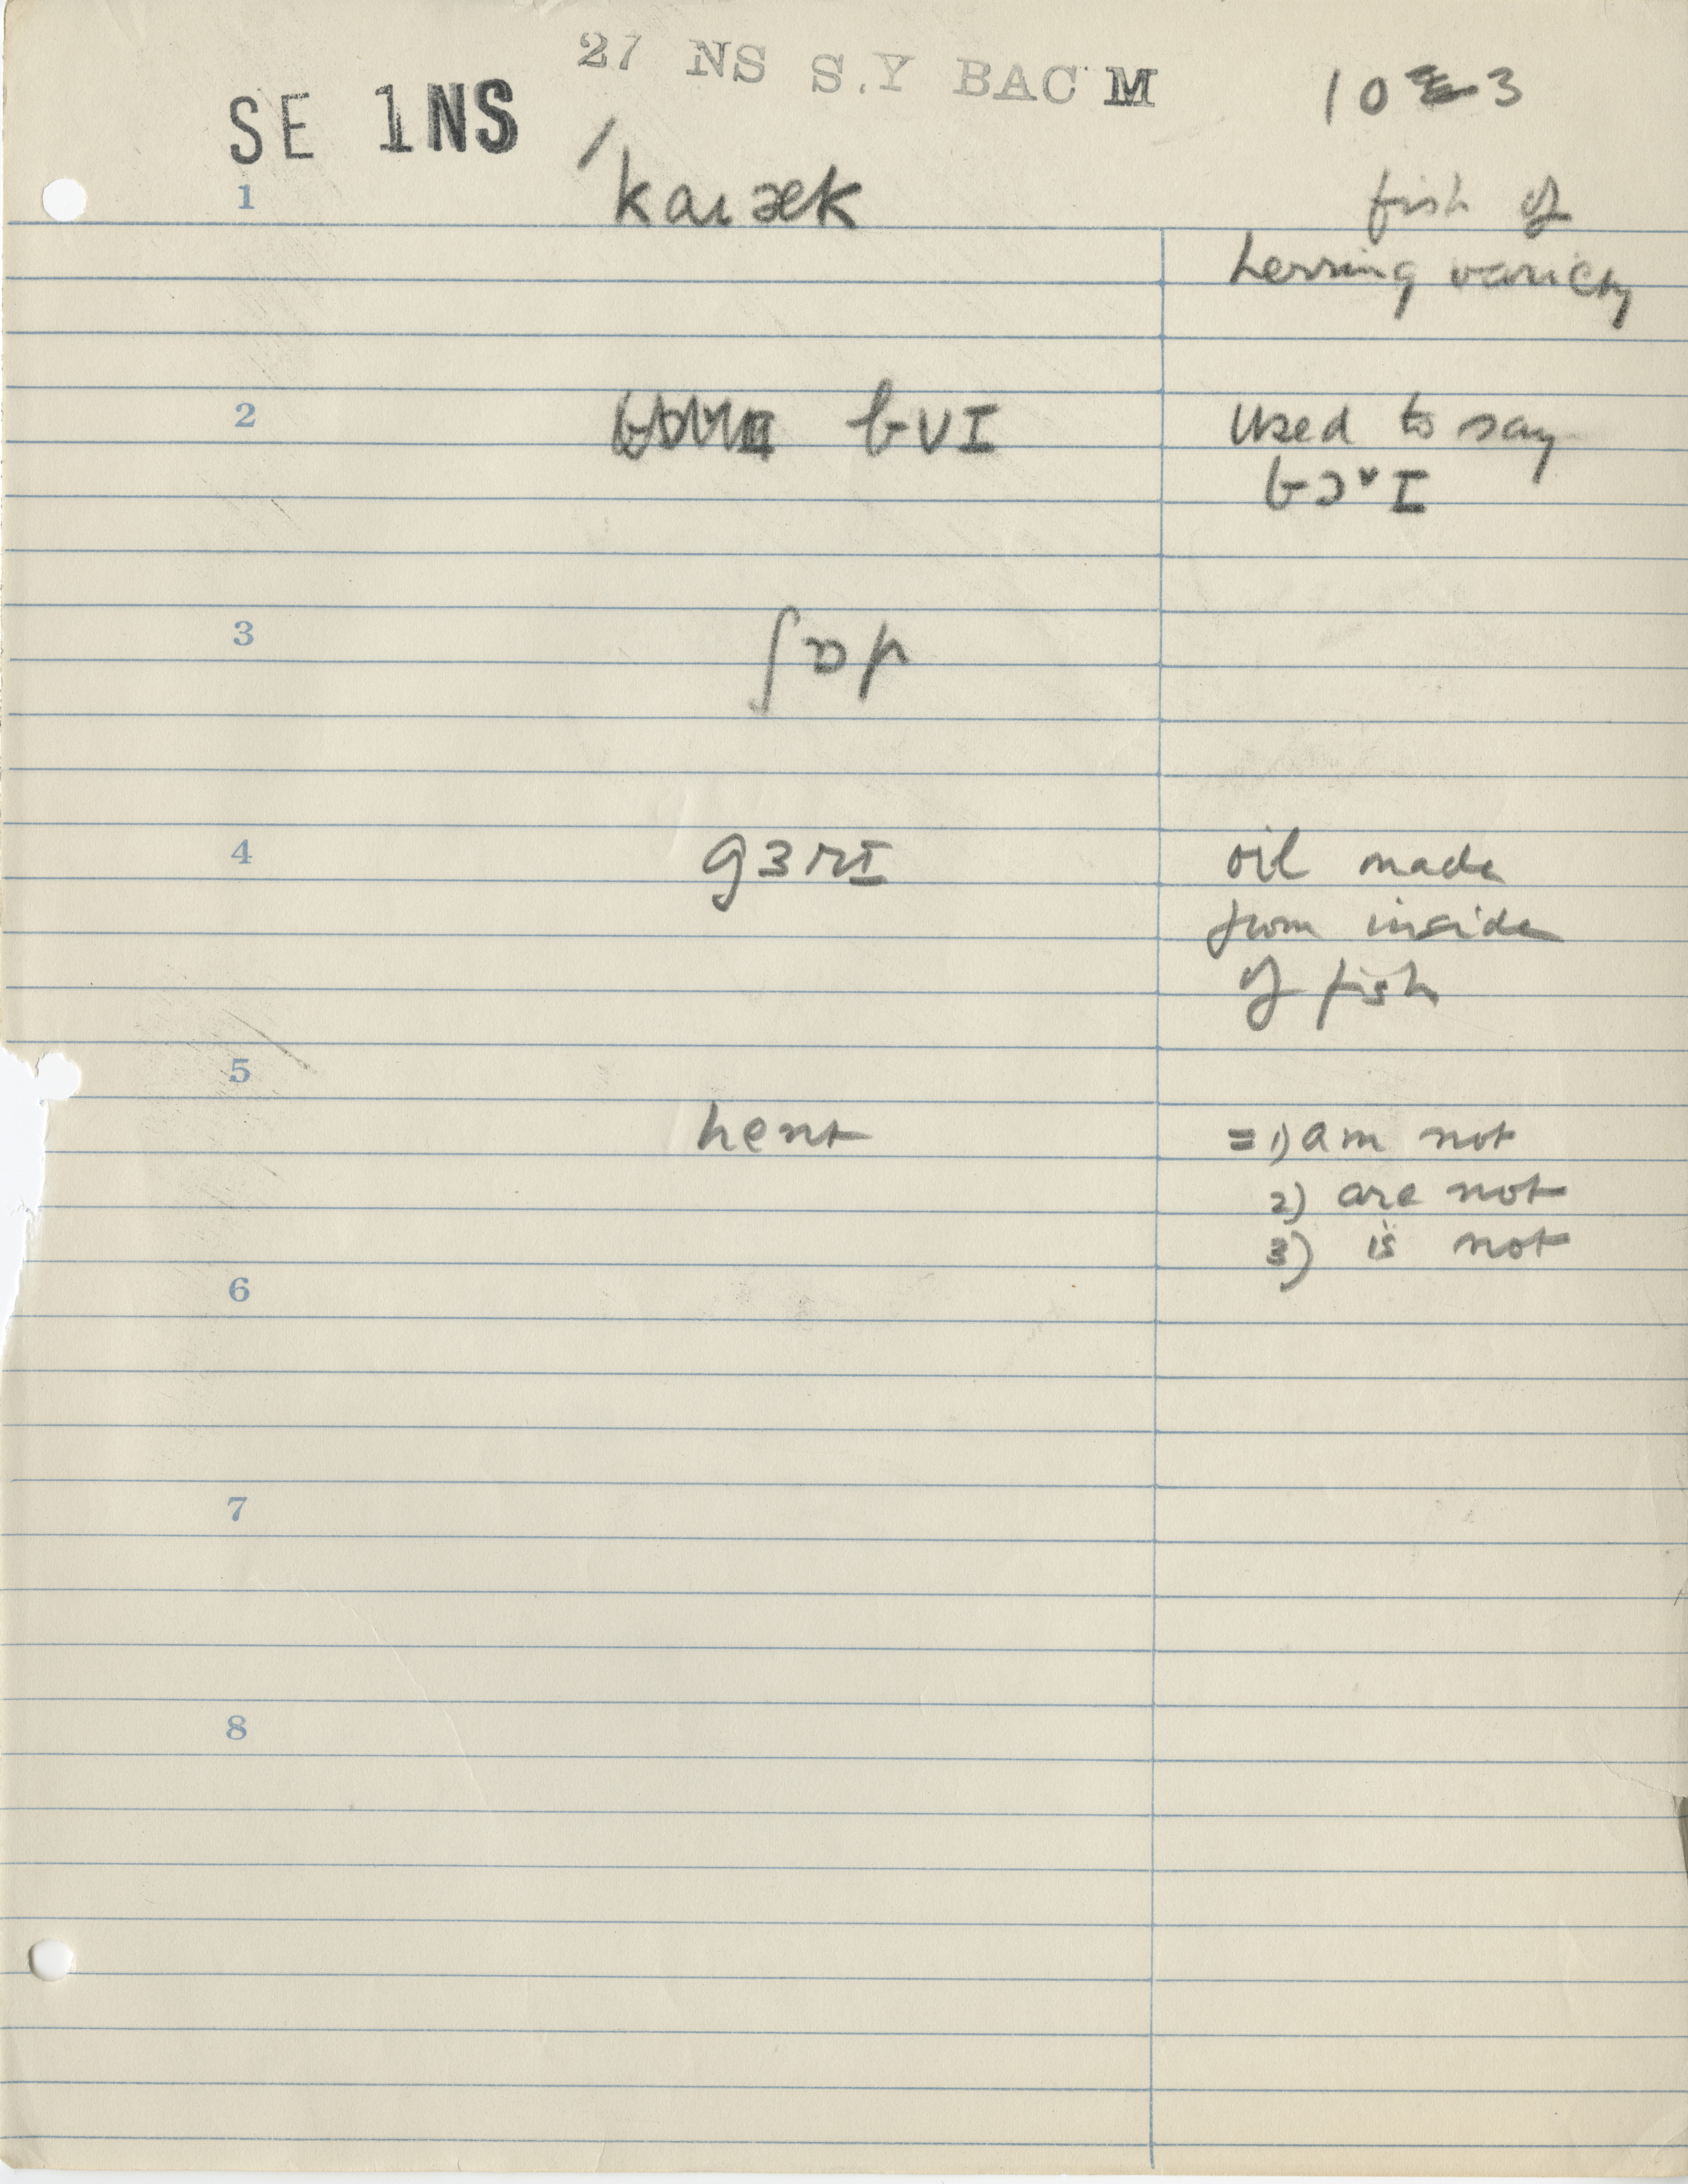 27 NS S.Y BAC M
10 3
SE 1NS
1
ˈkaɪæk
fish of
herring variety
2
bʊI
used to say
bɔᵛI
3
ʃɒp
4
gɜrɪ
oil made
from inside
of fish
5
hent
= 1) am not
2) are not
3) is not
6
7
8